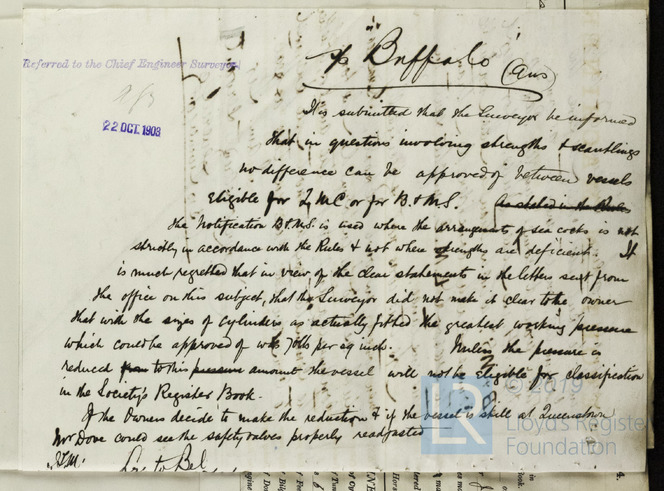 Referred to the Chief Engineer Surveyor
22 OCT. 1903
s/s "Buffalo" (Ans)
It is submitted that the Surveyor be informed
that in questions involving strengths & scantlings
no difference can be approved of between vessels
Eligible for LMC or for B&MS. (as stated in the Rules
The Notification B&MS. is used where the arrangements of sea cocks is not
strictly in accordance with the Rules & not where strengths are deficient. It
is much regretted that in view of the clear statements in the letters sent from
the office on this subject, that the Surveyor did not make it clear to the owner
that with the sizes of cylinders as actually fitted the greatest working pressure
which could be approved of was 70 lbs per sq inch. Unless the pressure is
reduced from to this pressure amount the vessel will not be Eligible for classification
in the Society's Register Book.
If the Owners decide to make the reduction & if the vessel is still at Queenstown
Mr Dove could see the safety valves properly readjusted
to Bel
© 2019
LR
Lloyd's Register
Foundation